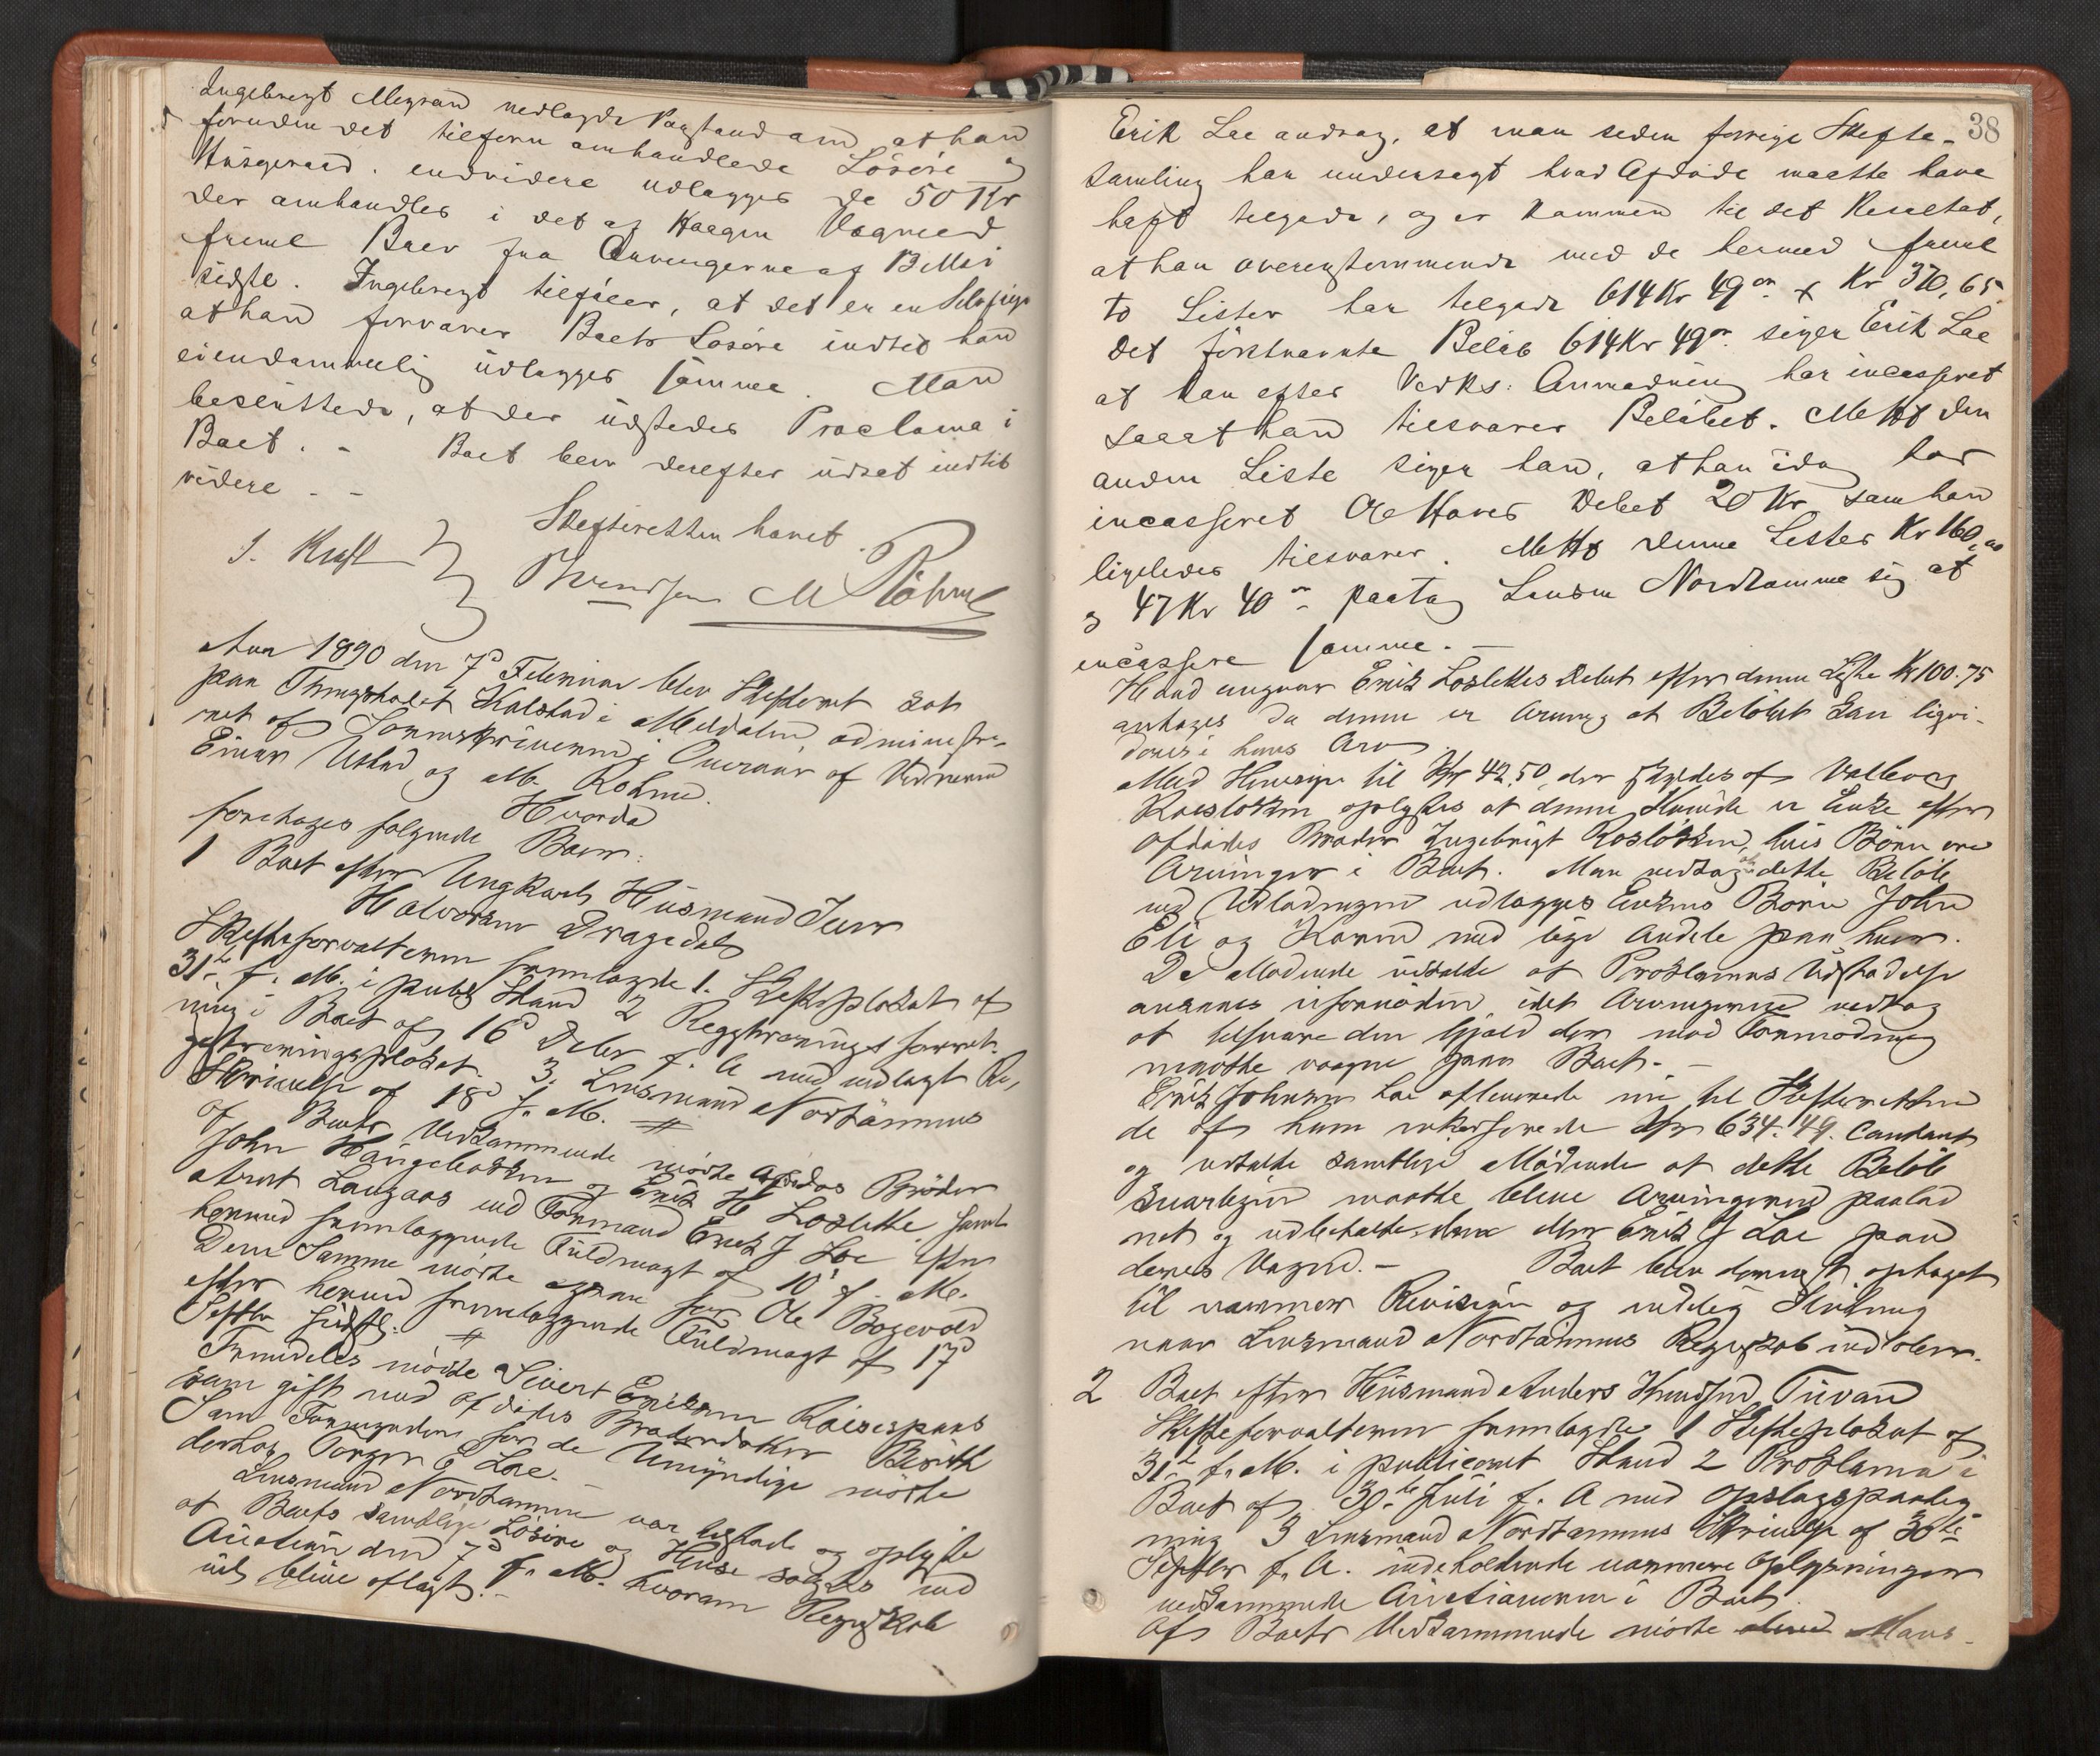 Ingebregt Megrand nedlagde Paastand om at han
foruden det tilforn omhandlede Lösöre og
Husgeraad endvidere udlægges de 50 Kr
der omhandles i det af Haagen Vognild
freml Brev fra Arvingerne af B Mai
sidste. Ingebregt tilföier, at det er en Selvfölge
at han forvarer Boets Lösöre indtil han
eiendommelig udlægges samme. Man
besluttede, at der udstedes Proclama i
Boet. - Boet blev derefter udsat indtil
videre - -
Skifteretten hævet.
J. Kraft M Röhme
Aar 1890 den 7d Februar blev Skifteret sat
paa Thingstedet Kalstad i Meldalen, administre-
ret af Sorenskriveren i Overvær af Vidnerne
Einar Ustad og M. Rohme.
Hvorda
foretoges følgende Boer:
1 Boet efter Ungkarl Husmand Iver
Halvorsen Dragedal
Skifteforvalteren fremlagde 1. Skifteplakat af
31te f. M. i publ Stand 2 Registreringsforret-
ning i Boet af 16d Decbr f. A med vedlagt Re-
gistreringsplakat. 3. Lensmand Nordtømmes
Skrivelse af 18d f. M. #
Af Boets Vedkommende mödte afdödes Brödre
John Haugelökken og Erik H Losletta samt
Arnt Langaas ved Formand Erik J Loe efter
hermed fremlæggende Fuldmagt af 10d f. M.
Den Samme mödte ogsaa for Ole Bogevold
efter hermed fremlæggende Fuldmagt af 17d
Septbr sidstl. #
Fremdeles mødte Sivert Eriksen
som gift med afdödes Broderdatter Berith
Som Formynder for de Umyndige mödte
Torger E Loe.
Lensmand Nordtömme var tilstede og oplyste
at Boets samtlige Lösöre og Huse solgtes ved
Auction den 7d f. M. hvorom Regnskab
vil blive aflagt. -
38
Erik Loe androg, at man siden forrige Skifte-
samling har undersøgt hvad Afdöde maatte have
havt tilgode, og er kommen til det Resultat,
at han overenstemmende med de hermed freml
to Lister har tilgode 614 Kr 49 ør & Kr 370,65
det förstnævnte Belöb 614 Kr 49 ør siger Erik Loe
at han efter Vedks: Anmodning har incasseret
saa at han tilsvarer Belöbet. Mht den
anden Liste siger han, at han idag har
incasseret Ole Hoves Debet 20 Kr som han
ligeledes tilsvarer. Mht denne Listes Kr 160,00
og 47 Kr 40 ør paatog Lensm Nordtømme sig at
incassere samme. -
Hvad angaaer Erik Loslettes Debet efter denne Liste Kr 100.75
antages da denne er Arving at Belöbet kan liqvi-
deres i hans Arv
Med Hensyn til Kr 42.50, der skyldes af Valborg
oplystes at denne Kvinde er Enke efter
afdödes Broder Ingebrigt hvis Börn ere
Arvinger i Boet. Man vedtog at dette Belöb
ved Udlodningen udlægges Enkens Börn John
Eli og Karen med lige Andele paa hver.
De Mödende udtalte at Proklamas Udstedelse
ansaaes ufornöden idet Arvingerne vedtog
at tilsvare den Gjæld der mod Formodning
maatte paa Boet. -
Erik Johnsen Loe afleverede nu til Skifteretten
de af ham inkasserede Kr 634.49. Contant
og udtalte samtlige Mödende at dette Belöb
snarligen maatte blive Arvingerne paalod
net og udbetaltes dem eller Erik J Loe paa
deres Vegne. - Boet blev dernæst optaget
til nærmere Revision og endelig Slutning
naar Lensmand Nordtömmes Regnskab indløber.
2 Boet efter Husmand Anders Knudsen Tuvan
Skifteforvalteren fremlagde 1 Skifteplakat af
31te f. M. i publiceret Stand 2 Proklama i
Boet af 30te Juli f. A med Opslagspaateg
ning 3 Lensmand Nordtömmes Skrivelse af 30te
Septbr f. A. indeholdende nærmere Oplysninger
vedkommende Auctionerne i Boet.
Af Boets Vedkommende mödte Mons-